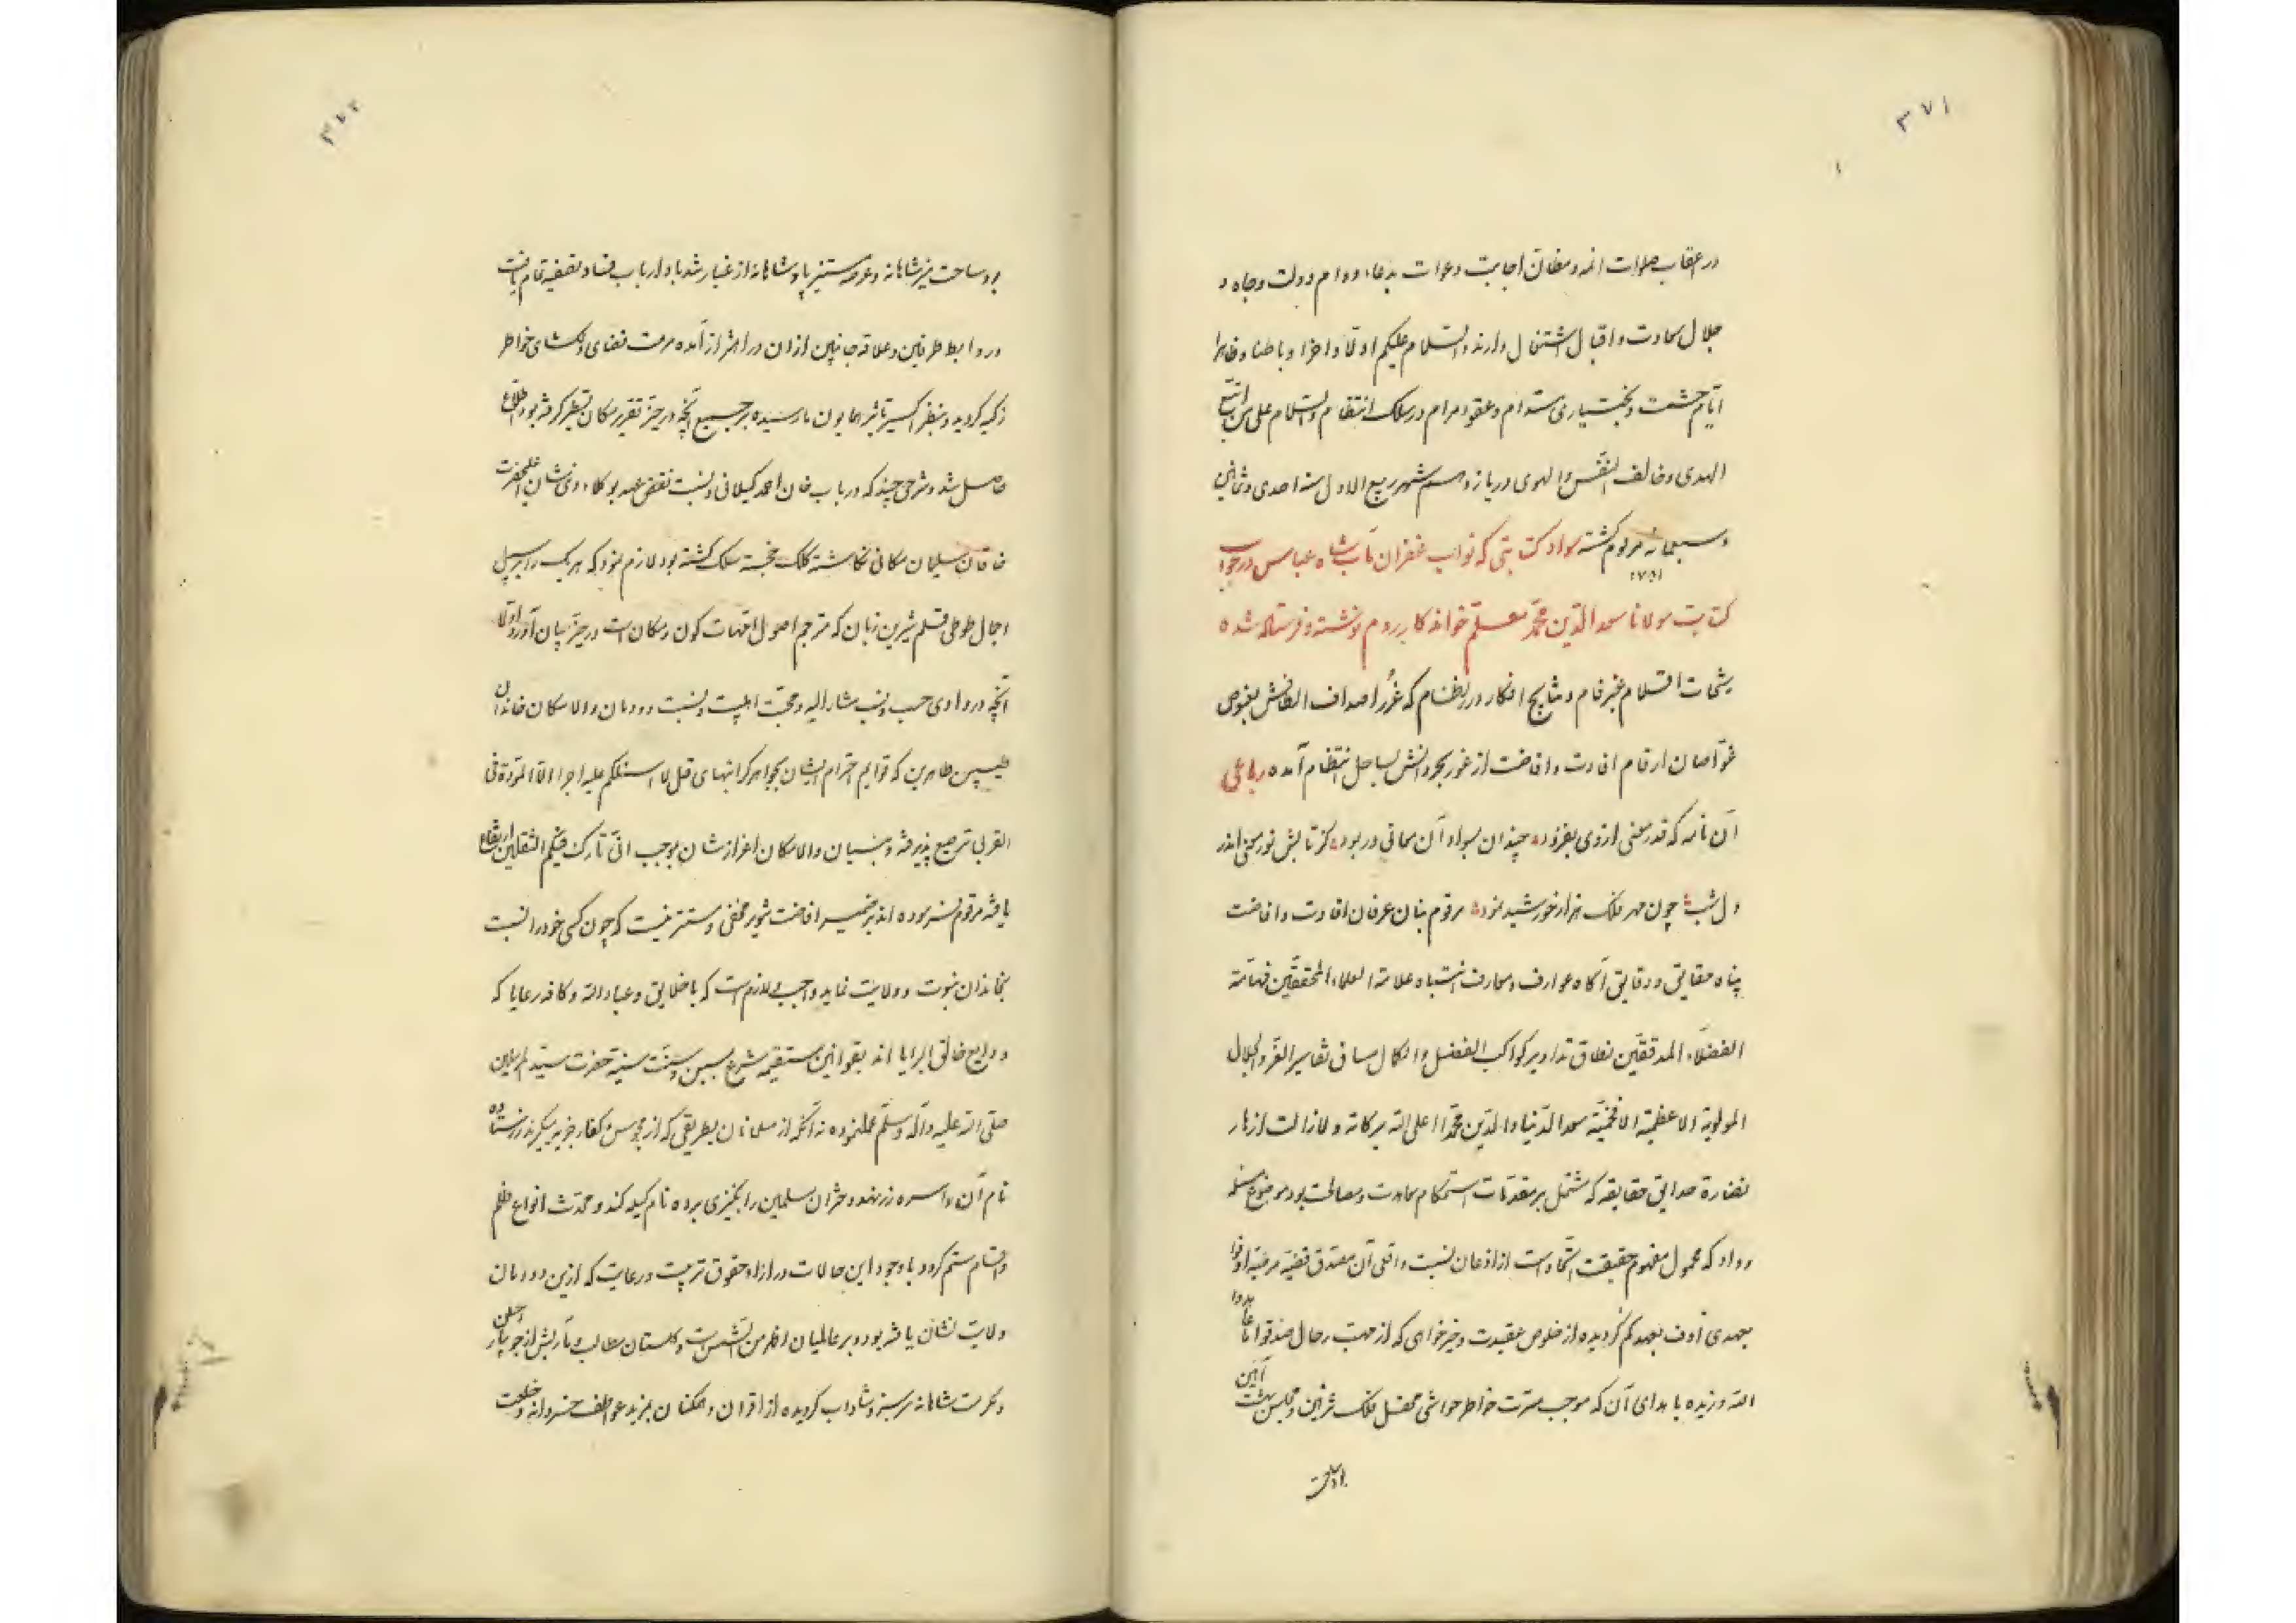 ۳۷۱
در اعقاب صلوات ائمه و مظان اجابت دعوات بدعاء دوام دولت و جاه و
جلال سعادت و اقبال اشتغال دارند والسلام علیکم اولاً و اخرا و باطنا و ظاهرا
ایام حشمت و بختیاری مستدام و عقود مرام در سلک انتظام والسلام علی من اتبع
الهدی و خالف النفس و الهوی در یازدهم شهر ربیع الاول سنه احدی و ثمانین
و سبعمائه مرقوم گشته سواد کتابتی که نواب غفران مآب شاه عباس در جواب
کتابت مولانا سعد الدین محمد معلم خواندکار روم نوشته و فرستاده شده
رشحات اقلام عنبر فام و نتایج افکار درر نظام که غرر اصداف الطافش بغوص
غواصان ارقام افادت و افاضت از غور بحر دانش بساحل انتظام آمده رباعی
آن نامه که قدر معنی از وی بفزود چندان بسواد آن معانی در بود کز تابش نور معنی اندر
دل شب چون مهر فلک هزار خورشید نمود مرقوم بنان عرفان افادت و افاضت
پناه حقایق و دقایق آگاه عوارف و معارف انتباه علامة العلماء المحققین فهامة
الفضلاء المدققین نطاق تداویر کواکب الفضل و الکمال مساق تفاسیر الغر و الجلال
المولویة الاعظمیة الافخمیة سعد الدنیا والدین محمدا اعلی الله برکاته و لازالت ازهار
نضارة حدایق حقایقه که مشتمل بر مقدمات استحکام معاهدت و مصالحت بود موضوع مسئله
وداد که محمول مفهوم حقیقت اتحاد است از اذعان نسبت واقعی آن مصدق قضیه مرضیه اوفوا
بعهدی اوف بعهدکم گردیده از خلوص عقیدت و خیرخواهی که از مهب رجال صدقوا ما عاهدوا
الله وزیده بادای آن که موجب مسرت خواطر حواشی محفل فلک تزئین و مجلس بهشت آئین
بود ساحت
۳۷۲
بود ساحت ضمیر شاهانه و عرصه مستنیر پادشاهانه از غبار شد باد ارباب فساد تصفیه تمام یافت
و روابط طرفین و علاقه جانبین از ان در اهتزاز آمده مرمت فضای دلگشای خواطر
زکیه گردید و بنظر اکسیر تاثیر همایون ما رسیده بر جمیع آنچه در حیز تقریر مکان تسطیر گرفته بود اطلاع
حاصل شد و شرحی چند که در باب خان احمد گیلانی و نسبت نقض عهد بوکلاء ذی شان اعلیحضرت
خاقان سلیمان مکانی نگاشته کلک خجسته سلک گشته بود لازم نمود که هر یک را بر سبیل
اجمال طوطی قلم شیرین زبان که مترجم اصول امهات کون و مکان است در حیز بیان آورد اولا
آنچه در وادی حسب و نسب مشار الیه و محبت اهلبیت و نسبت دودمان والا مکان خاندان
طیبین طاهرین که قوایم احترام ایشان بجواهر گرانبهای قل لا اسئلکم علیه اجرا الا المودة فی
القربی ترصیع پذیرفته و بنیان والا مکان اعزازشان بموجب انی تارک فیکم الثقلین ارتفاع
یافته مرقوم نموده بوده اند بر ضمیر افاضت تنویر مخفی و مستتر نیست که چون کسی خود را نسبت
بخاندان نبوت و ولایت نماید واجب و لازم است که با خلایق و عباد الله و کافه رعایا که
ودایع خالق البرایا اند بقوانین مستقیمه شرع مبین و سنت سنیه حضرت سید المرسلین
صلی الله علیه و آله و سلم عمل نموده نه آنکه از مسلمانان بطریقی که از مجوس و کفار جزیه میگیرند زر ستاده
نام آن سره زر نهد و دختران مسلمین را بکنیزی برده نام کیله کند و محدث انواع ظلم
و اقسام ستم گردد با وجود این حالات در ازاء حقوق تربیت و رعایت که ازین دودمان
ولایت نشان یافته بود و بر عالمیان اظهر من الشمس است و گلستان مطالب و مآربش از جویبار احسان
و مکرمت شاهانه سرسبز و شاداب گردیده از اقران و امثال بمزید عواطف خسروانه و خلعت